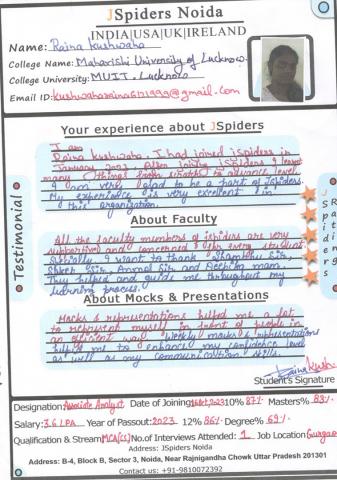 JSpiders Noida
INDIA|USA|UK|IRELAND
Name: Raina Kushwaha
College Name: Maharishi University of Lucknow
College University: MUIT, Lucknow
Email ID: kushwaharaina621999@gmail.com
Your experience about JSpiders
I am
Raina Kushwaha. I had joined jspiders in
January 2023. After joining jspiders I learnt
many things from scratch to advance level.
I am very glad to be a part of jspiders.
My experience is very excellent in
this organization.
Testimonial
JSpiders
Rating
About Faculty
All the faculty members of jspiders are very
supportive and concerned for every student.
Specially I want to thank Shambhu Sir,
Sir, Anmol Sir and mam.
They helped and guide me throughout my
learning process.
About Mocks & Presentations
Mocks & representations helped me a lot
to represent myself in front of people in
an efficient way. Weekly mocks & representations
helped me to enhance my confidence level
as well as my communication skills.
Raina Kush
Student's Signature
Designation: Associate Analyst Date of Joining: 2023 10% 87% Masters% 83%
Salary: 3.6 LPA Year of Passout: 2023 12% 86% Degree% 69%
Qualification & Stream MCA(CS) No.of Interviews Attended: 1 Job Location Gurgao
Address: JSpiders Noida
Address: B-4, Block B, Sector 3, Noida, Near Rajnigandha Chowk Uttar Pradesh 201301
Contact us: +91-9810072392